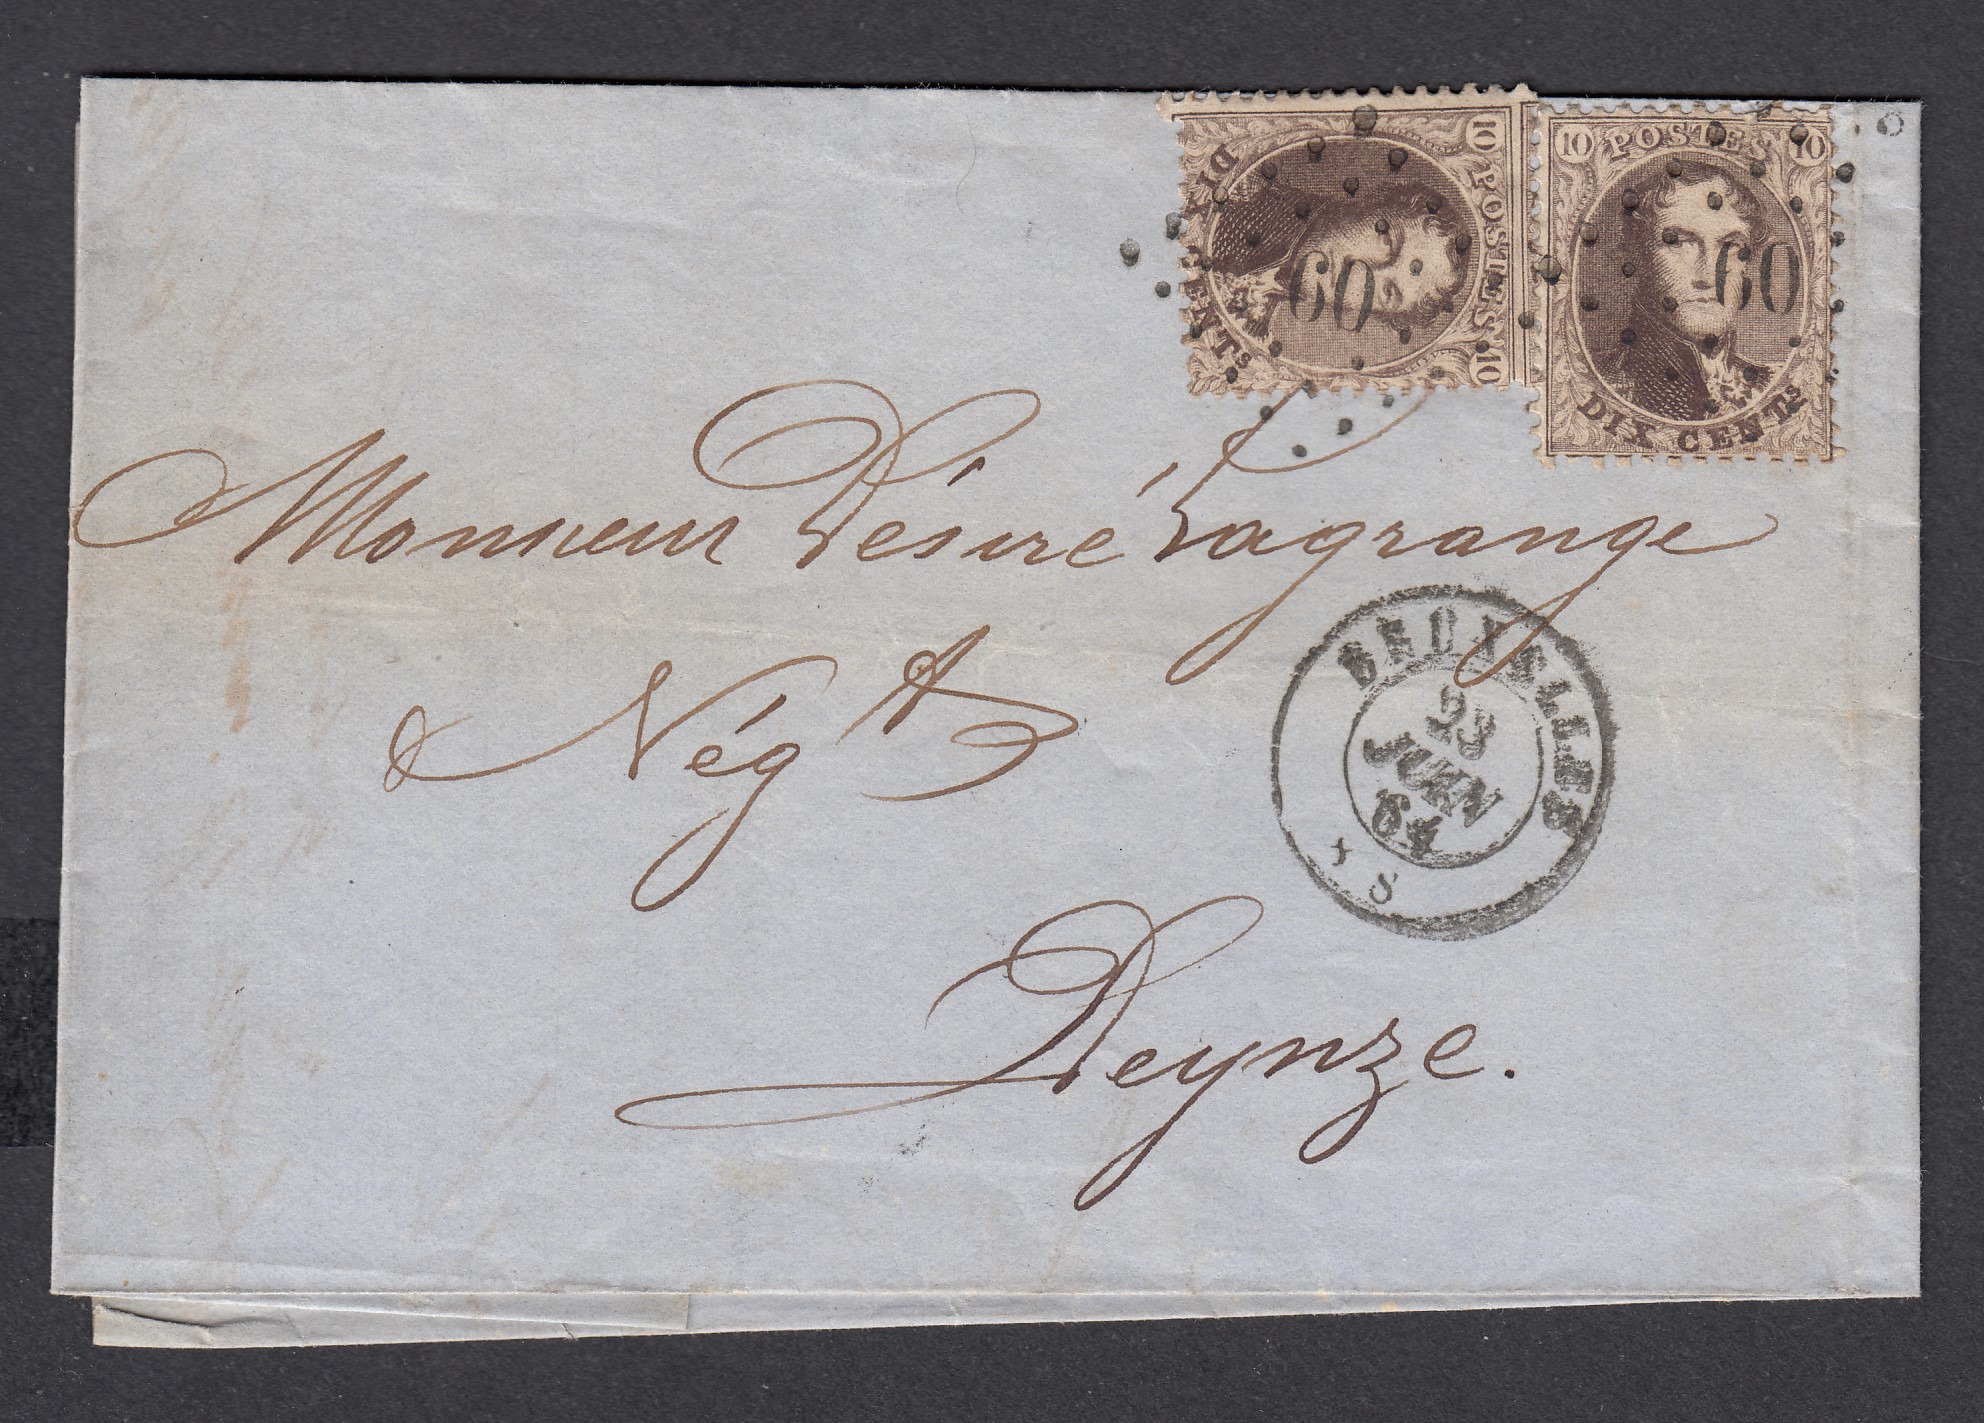 10 POSTES 10
DIX CENTS
60
10 POSTES 10
DIX CENTS
60
Monsieur Désiré Lagrange
Négt
Deynze.
BRUXELLES
23
JUIN
64
S